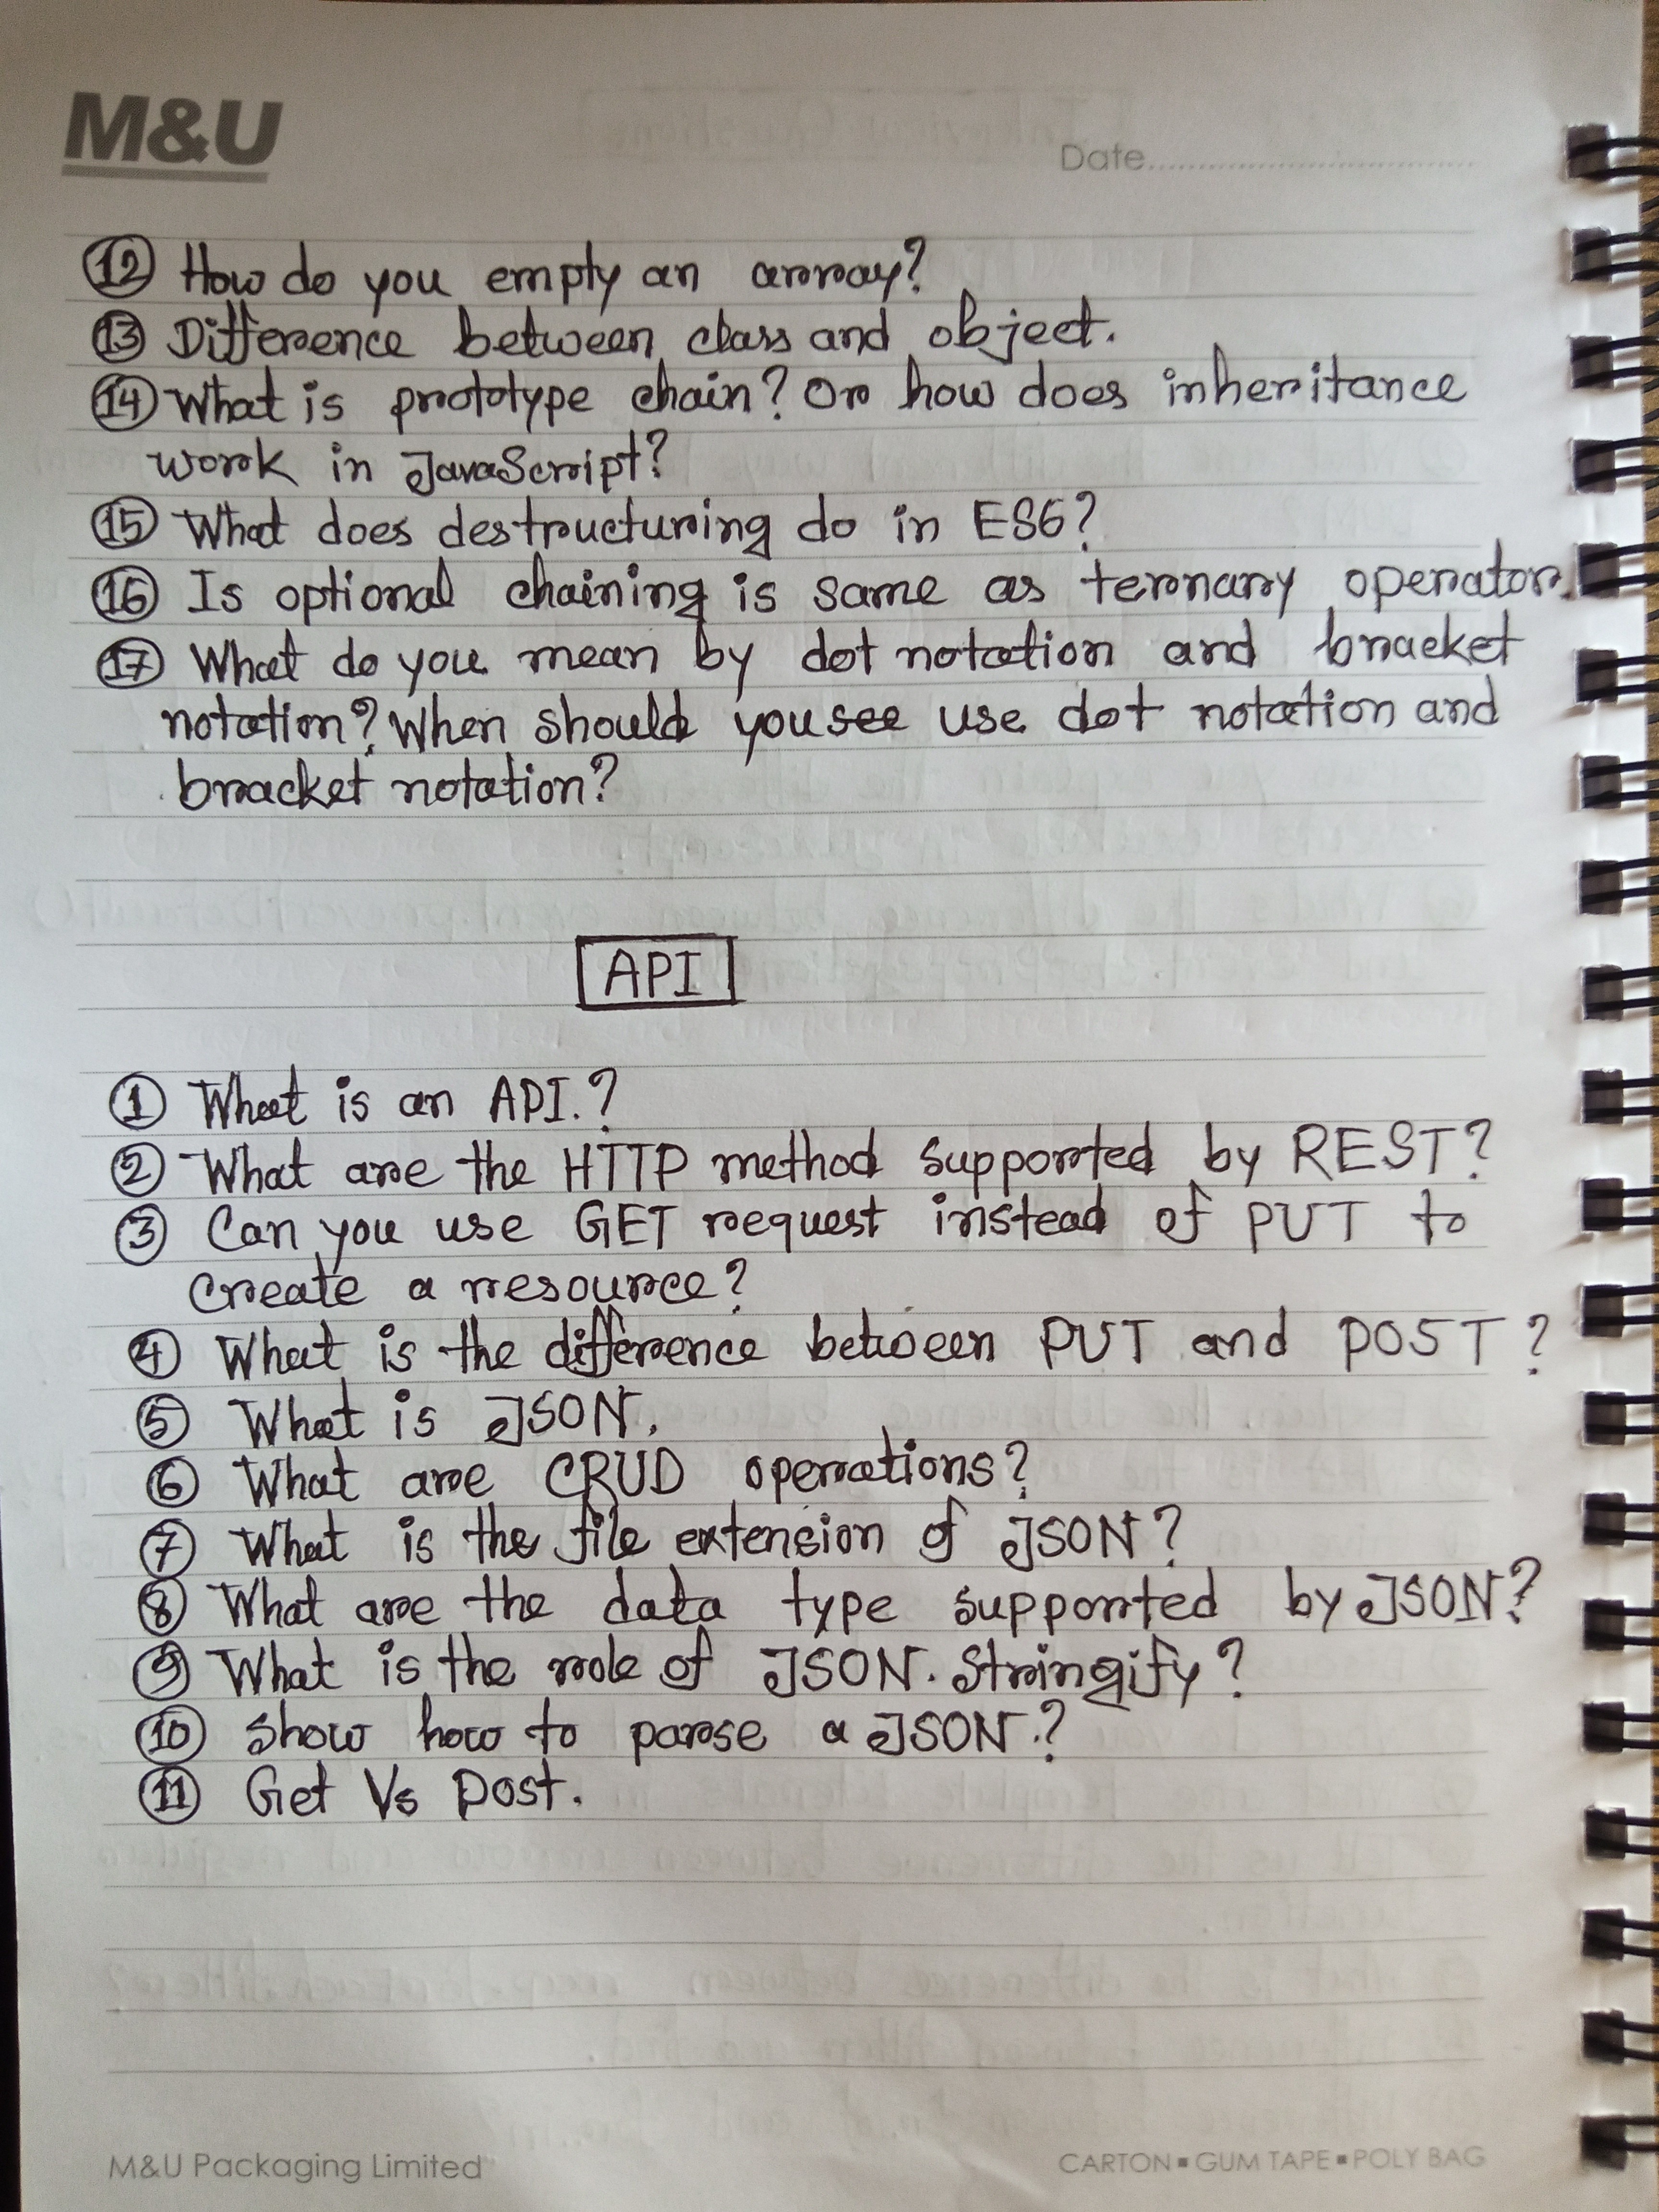 M&U
Date
12 How do you empty an array?
13 Difference between class and object.
14 What is prototype chain? Or how does inheritance
work in JavaScript?
15 What does destructuring do in ES6?
16 Is optional chaining is same as ternary operator.
17 What do you mean by dot notation and bracket
notation? When should you see use dot notation and
bracket notation?
API
1 What is an API.?
2 What are the HTTP method supported by REST?
3 Can you use GET request instead of PUT to
create a resource?
4 What is the difference between PUT and POST?
5 What is JSON.
6 What are CRUD operations?
7 What is the file extension of JSON?
8 What are the data type supported by JSON?
9 What is the role of JSON. Stringify?
10 Show how to parse a JSON.?
11 Get Vs Post.
M&U Packaging Limited
CARTON▪GUM TAPE▪POLY BAG